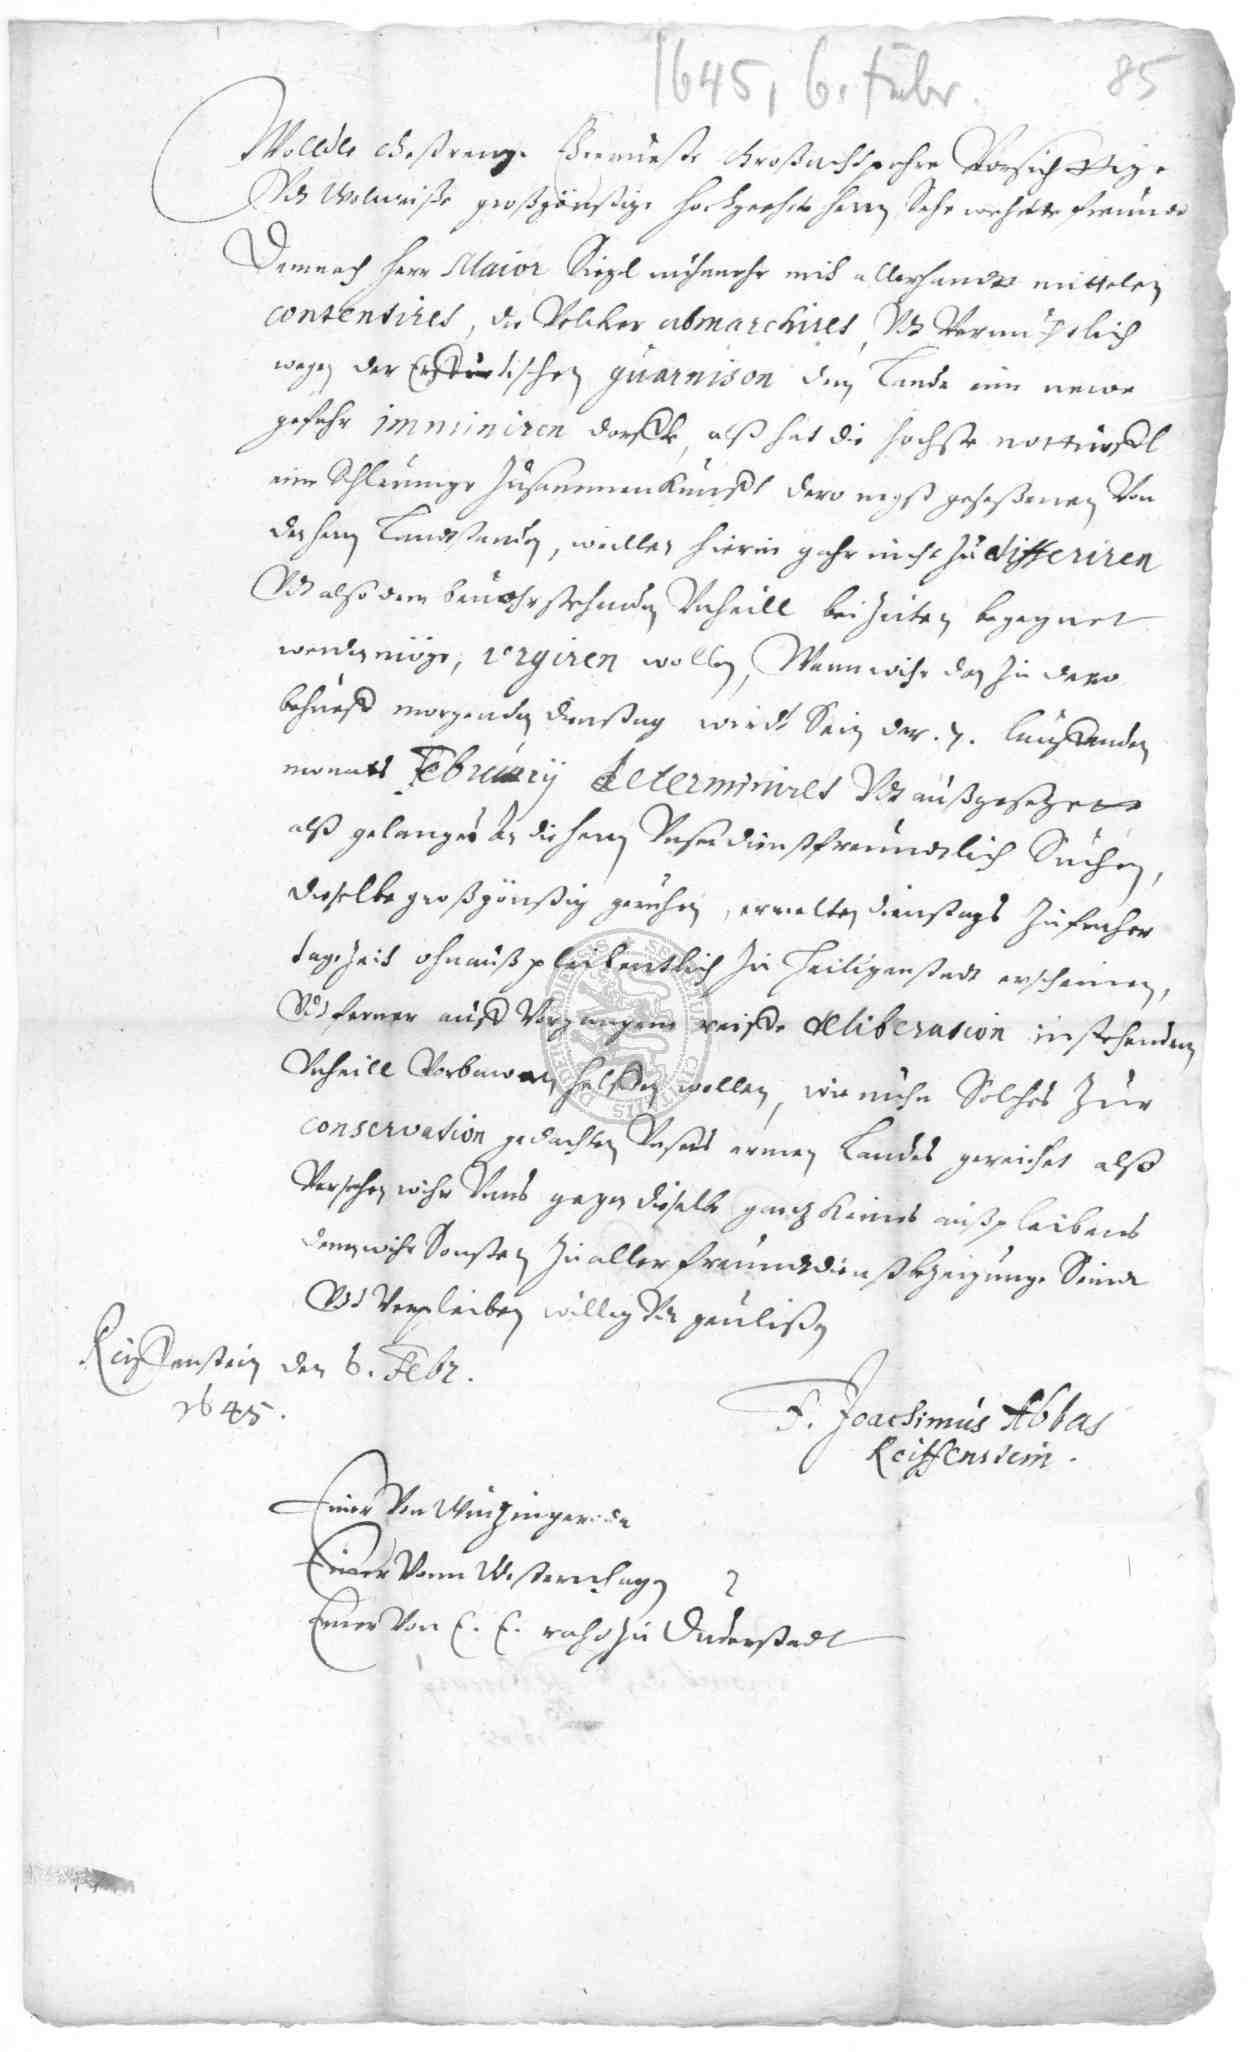 1645, 6. Febr.
85
WollEdle Gestrenge Ehrnueste Großachtpahre Vorsichttige
Vndt Wolweiße großgönstige hochgeehrte herrn Sehr wehrte freunde
Demnach herr Maior Siegel nuhmehr mit allerhandt mittelen
contentiret, die Völcker abmarchiret, Vndt Vermuhtlich
wegen der Erffurtischen guarnison dem Lande eine newe
gefahr imminiren dorffte, alß hat die hochste notturfft
eine Schleunige Zusammenkunfft dero negst geseßenen Von
den herrn Landtstenden, weillen hierin gahr nicht zu differiren
Vndt also dem beuohrstehenden Vnheill bei Zeiten begegnet
werden möge, vrgiren wollen, Wann wihr dan zu dero
behueff morgenden dienstag wirdt Sein der .7. lauffenden
monats February determiniret Vndt außgesetzet
alß gelanget an die herrn Vnser dienstfreundtlich Suchen,
dieselbe großgönstig geruhen, ermelten dienstags Zu fruher
tage Zeit ohnaußpleibentlich Zu Heiligenstadt erscheinen,
Vndt ferner auff Vorgangene reiffe deliberation instehenden
Vnheill Vorbawen helffen wollen, wie nuhn Solches Zur
conservation gedachten Vnsers armen Landes gereichet also
Versehen wihr Vnns gegen dieselbe gantz keines außpleibens
denen wihr Sonsten Zu aller freundtdienstbezeigunge Seindt
Vndt Verpleiben willig Vndt geulißen
Reiffenstein den 6. Febr.
1645.
F. Joachimus Abbas
Reiffenstein.
Einer Von Wintzingeroda
Einer Vonn Westernhagen
Einer Von E. E. raht zu Duderstadt